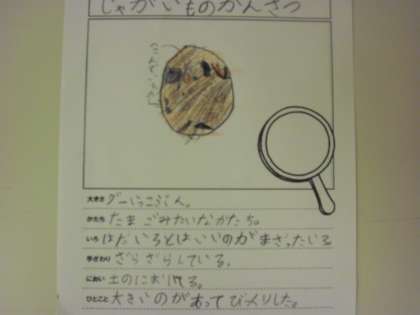 じゃがいものかんさつ
大きさ グーいっこぶん。
かたち たまごみたいなかたち。
いろ はだいろとはいいろのがまざったいろ
手ざわり ざらざらしている。
におい 土のにおいがする。
ひとこと 大きいのがあってびっくりした。